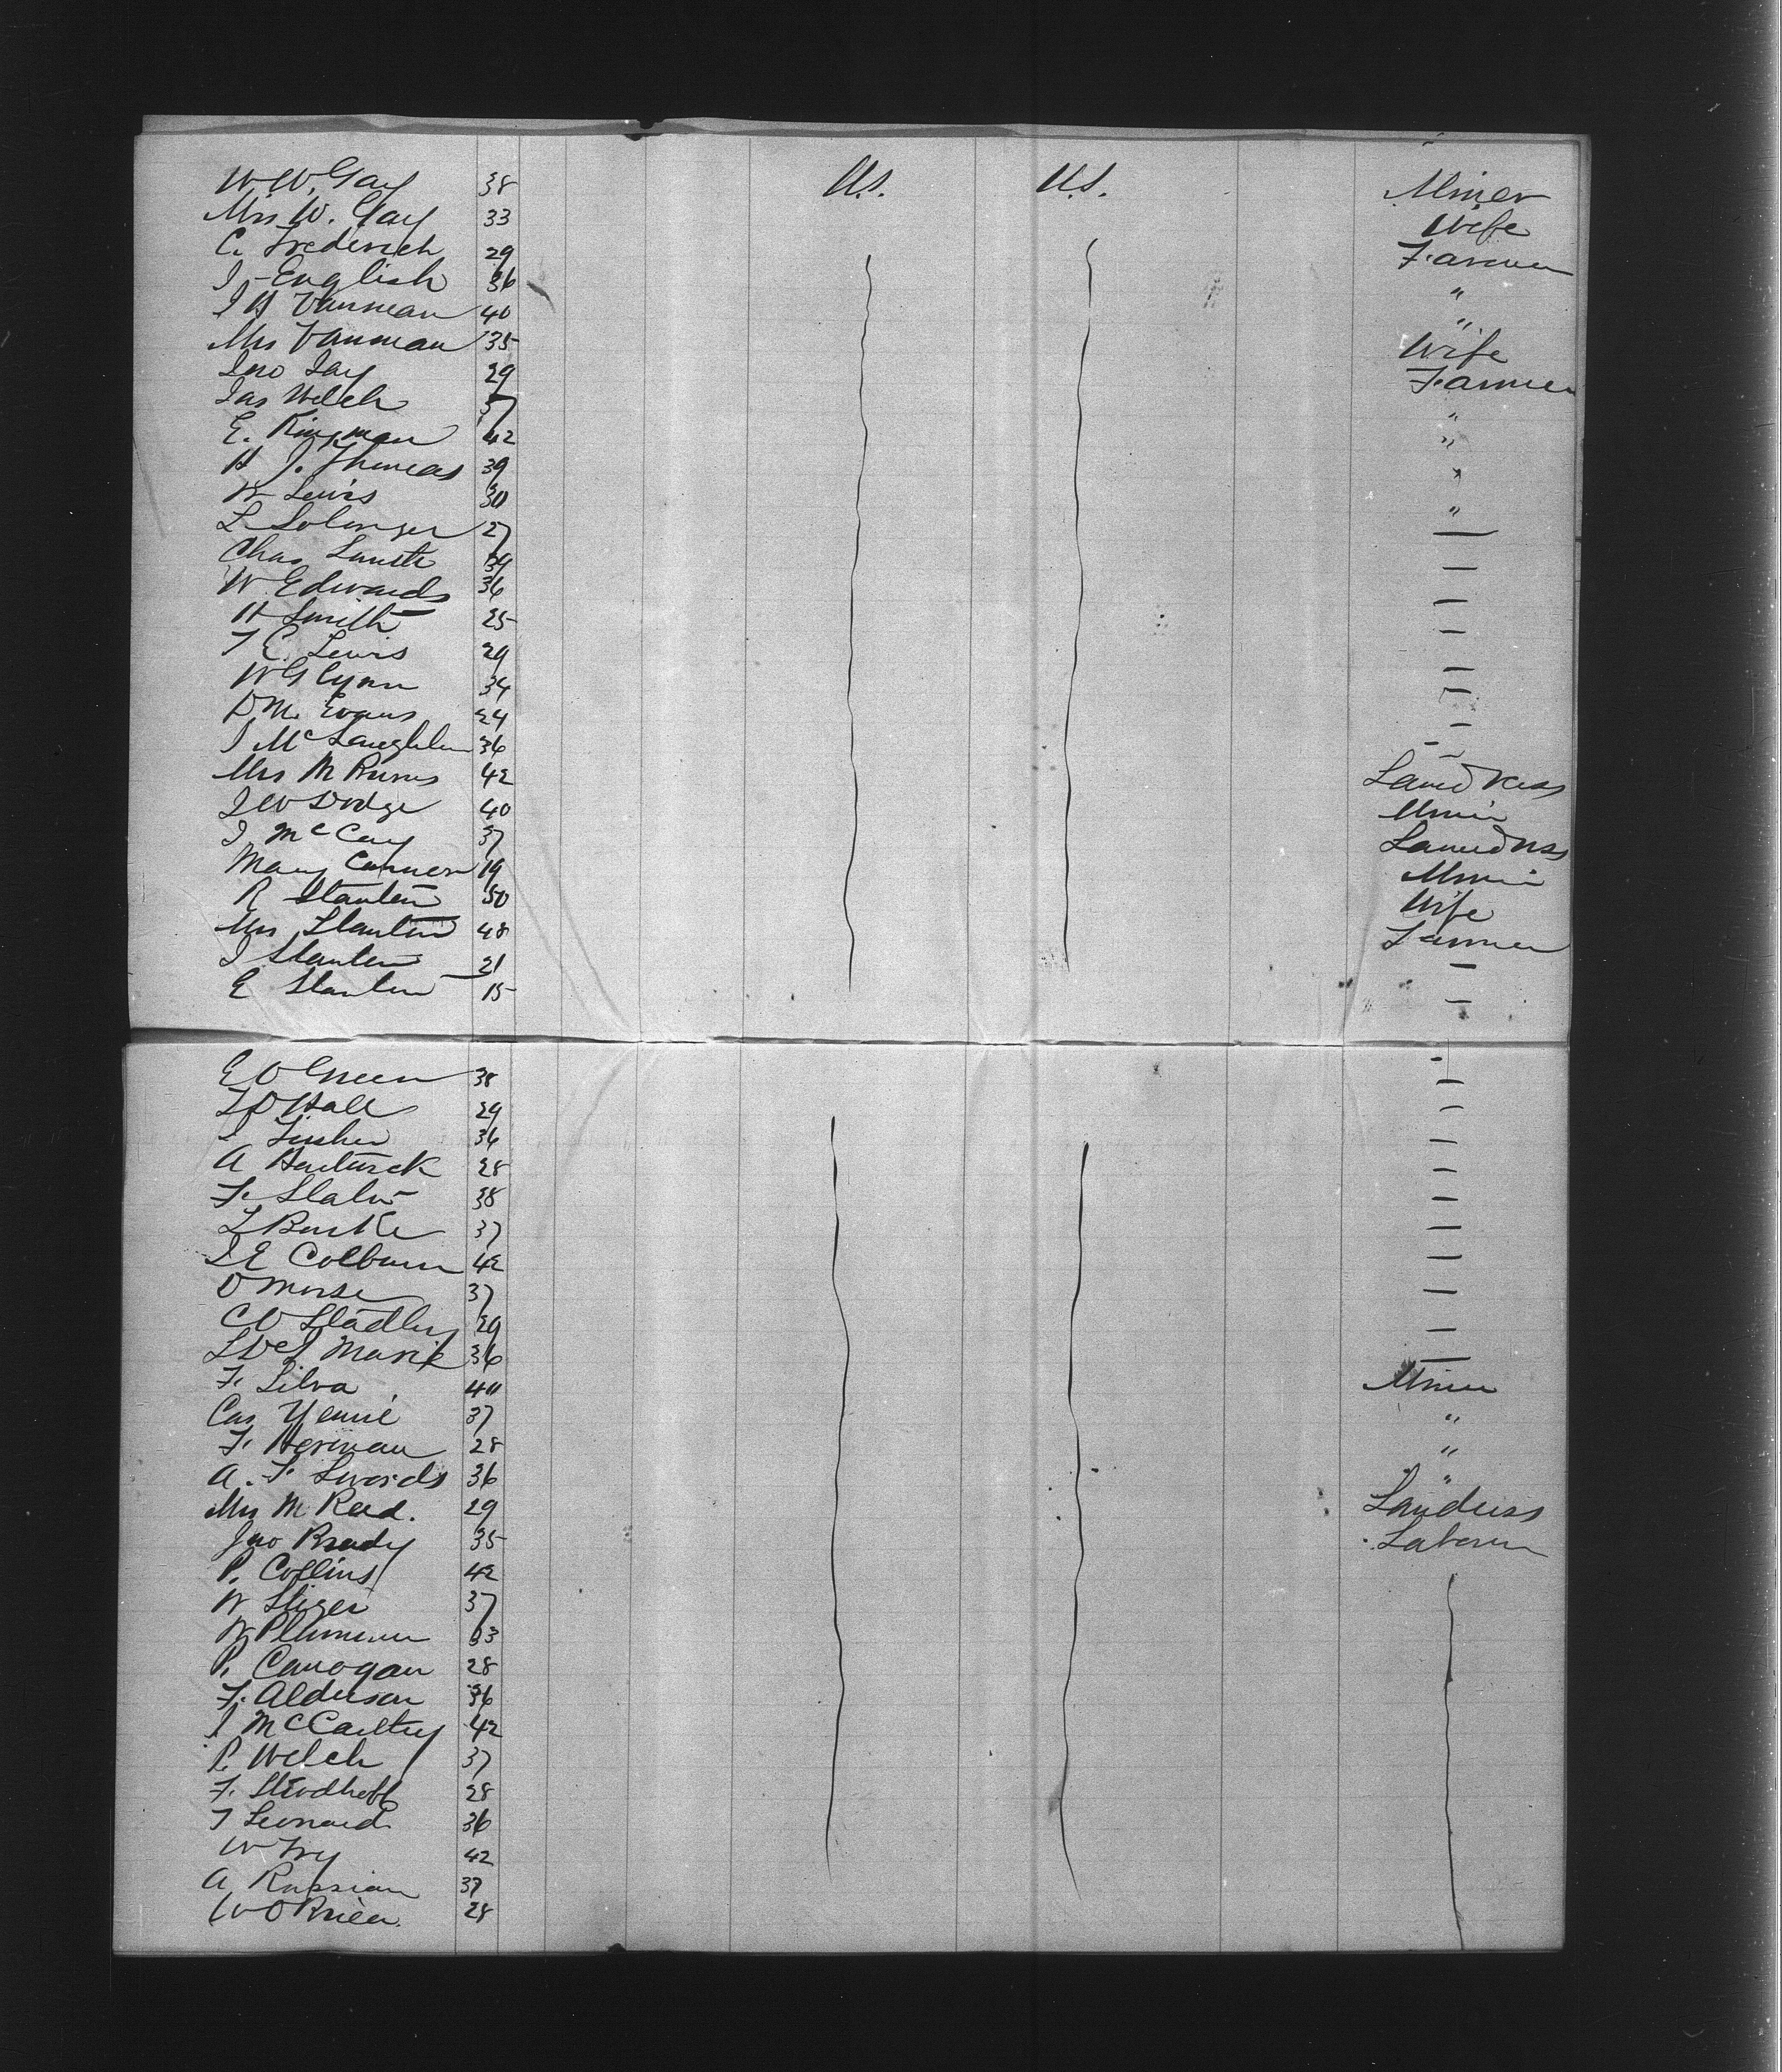 W.W. Gay 38 U.S. U.S. Miner
Mrs W. Gay 33 Wife
C. Frederich 29 Farmer
J. English 36 "
J H Vanmean 40 "
Mrs Vanmean 35 Wife
Jno Jay 29 Farmer
Jas Welch 37 "
E. Kingman 42 "
H J. Thomas 39 "
W Lewis 30 "
L Solonger 27 —
Chas Smith 39 —
W Edwards 36 —
H Smith 25 —
T E. Lewis 29 —
W Glynn 34 —
D M. Evans 24 —
J McLaughlin 36 —
Mrs M Burns 42 Laundress
J W Dodge 40 Miner
J McCay 37 Laundress
Mary Conner 19 Miner
R Stanton 50 Wife
Mrs Stanton 48 Farmer
J Stanton 21 —
E Stanton 15 —
E O Green 38 —
L D Hall 29 —
Fisher 36 —
A 28 —
F. Slater 38 —
L Burke 37 —
J E Colburn 42 —
D Morse 37 —
C O Stadley 29 —
36 —
F. Silva 40 Miner
Cas Yennie 37 "
F. Herman 28 "
A. F. Swords 36 "
Mrs M Reed. 29 Laundress
Jno Brady 35 Laborer
P. Collins 42
W Stiger 37
W Plummer 33
P. Canogan 28
F. Alderson 36
J McCarthy 42
P. Welch 37
F. Stlodhoff 28
T Leonard 36
W Fry 42
A Russian 37
W O Brien. 28